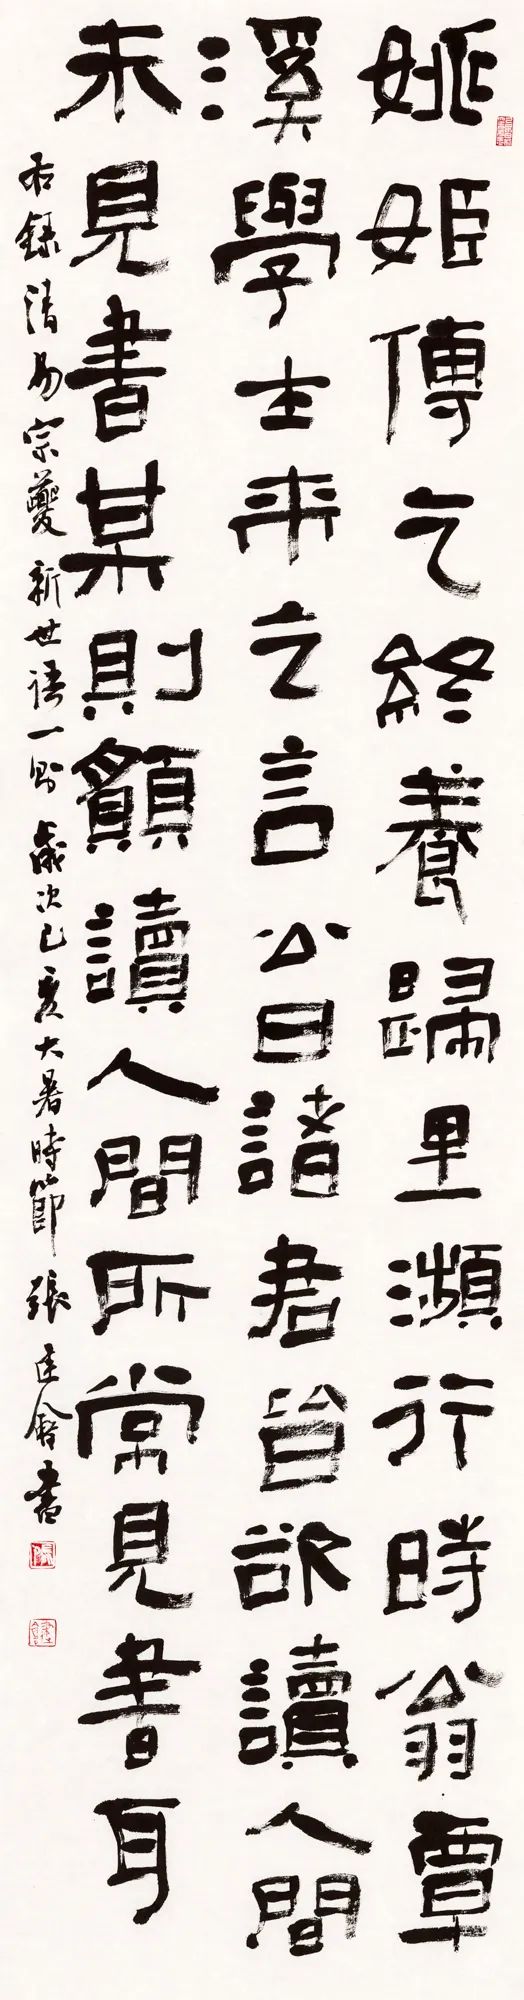 姚姬傳乞終養歸里瀕行時翁覃
溪學士來乞言公曰諸君皆欲讀人間
未見書某則願讀人間所常見書耳
右錄清易宗夔新世語一則歲次己亥大暑時節張建會書